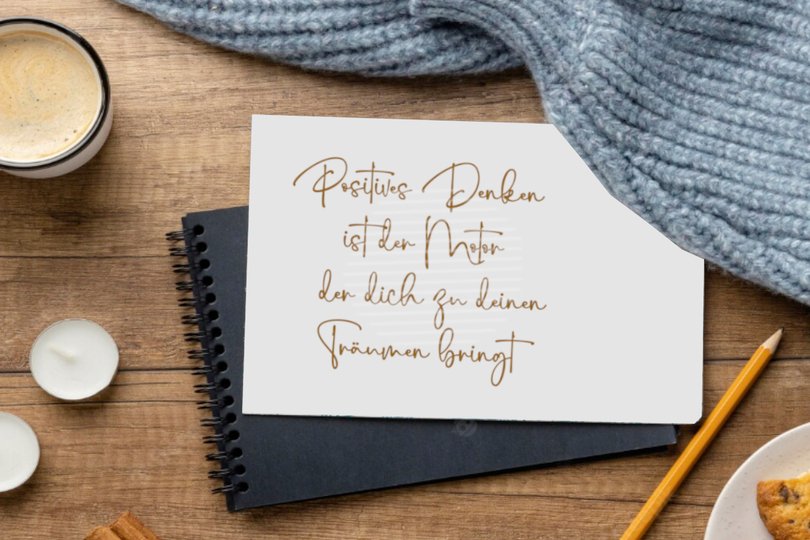 Positives Denken
ist der Motor
der dich zu deinen
Träumen bringt